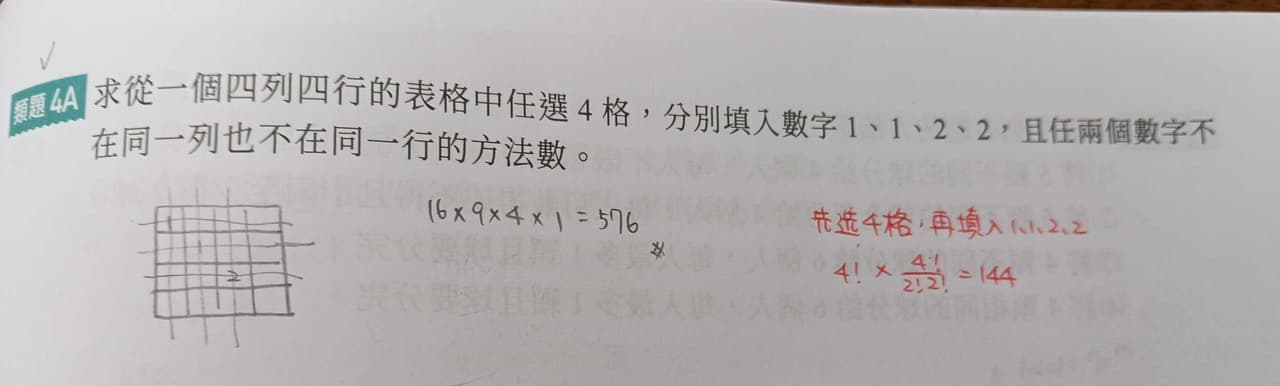 類題 4A 求從一個四列四行的表格中任選 4 格，分別填入數字 1、1、2、2，且任兩個數字不
在同一列也不在同一行的方法數。
16×9×4×1=576
先选4格，再填入1.1.2.2
4! × 4!/2!2! = 144
1
2